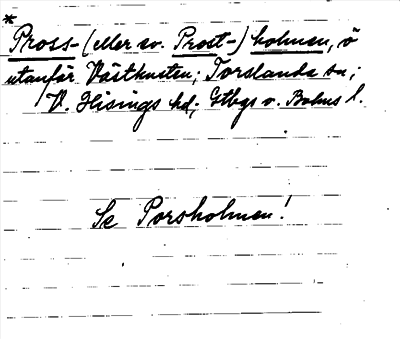 *
Pross- (eller sv. Prost-) holmen, ö
utanför Västkusten; Torslanda sn;
V. Hisings hd; Gtbgs o. Bohus l.
Se Porsholmen!